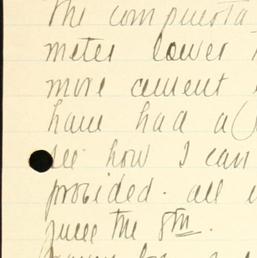 The computa
meter lower
more cement
have had a
see how I can
provided. all
the 8th.